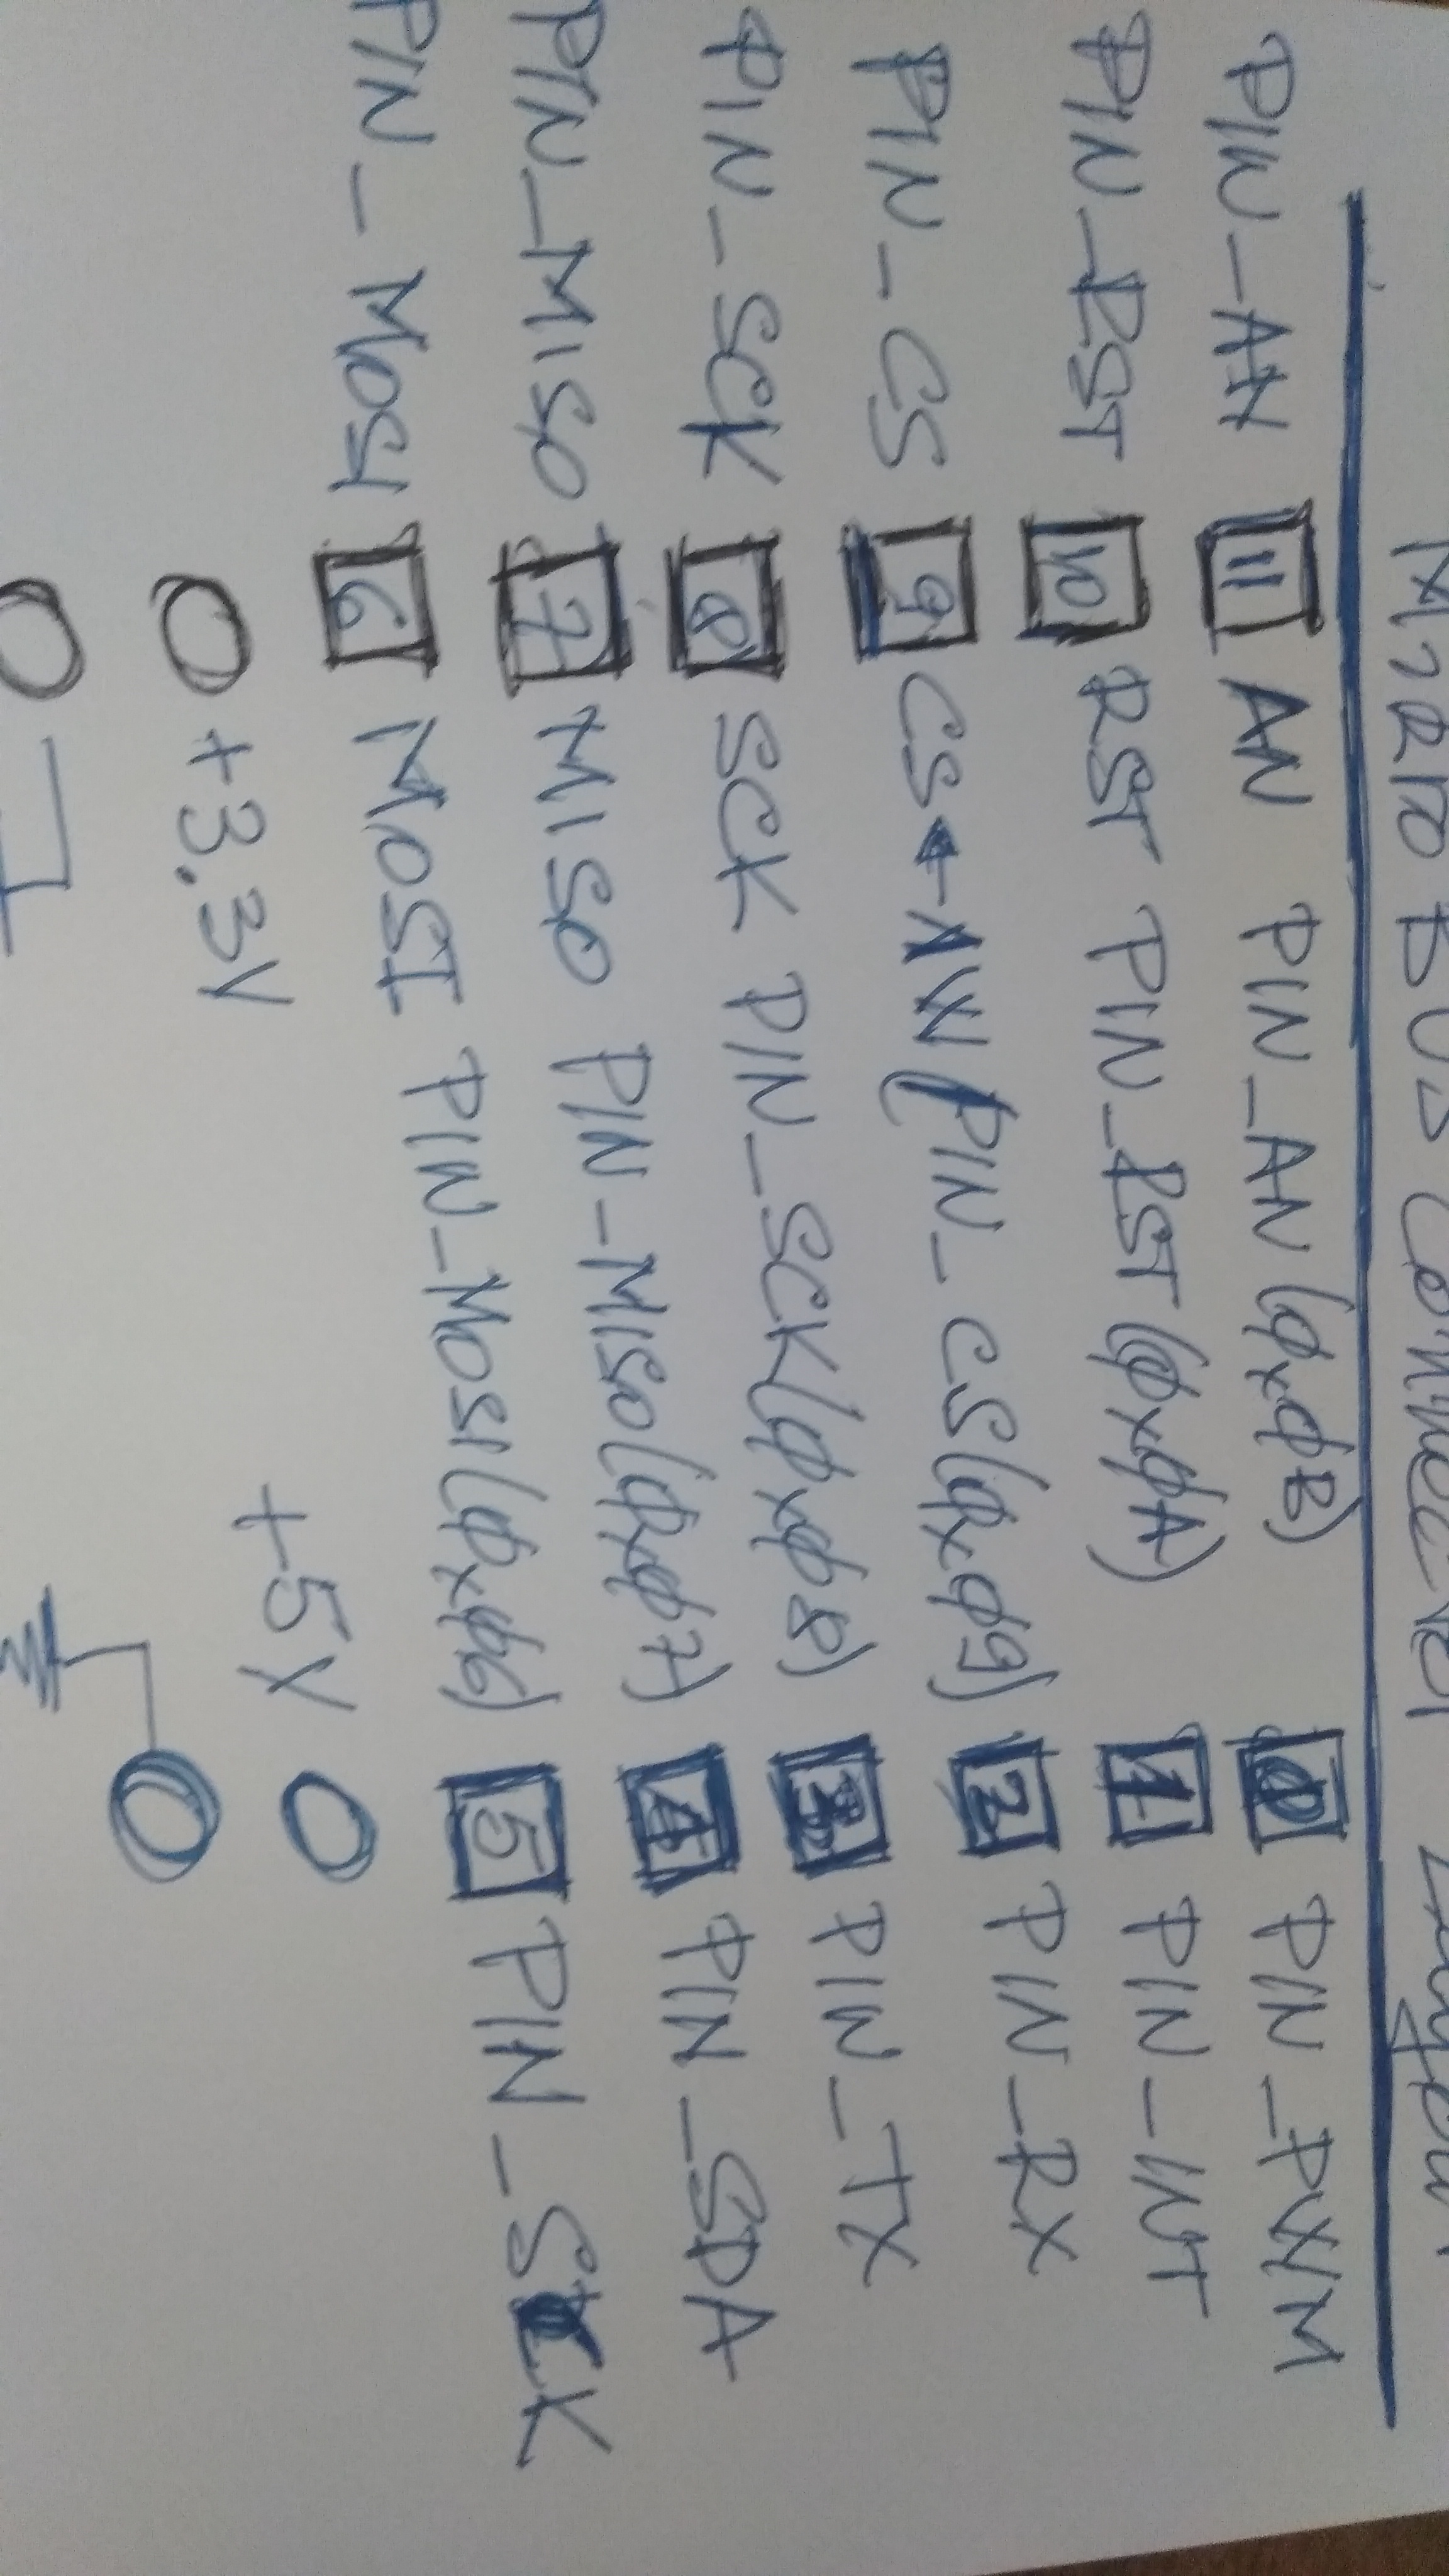 MikroBUS Connector
PIN_AN 11 AN PIN_AN(0x0B) 0 PIN_PWM
PIN_RST 10 RST PIN_RST(0x0A) 1 PIN_INT
PIN_CS 9 CS PIN_CS(0x09) 2 PIN_RX
PIN_SCK 8 SCK PIN_SCK(0x08) 3 PIN_TX
PIN_MISO 7 MISO PIN_MISO(0x07) 4 PIN_SDA
PIN_MOSI 6 MOSI PIN_MOSI(0x06) 5 PIN_SCK
+3.3V +5V